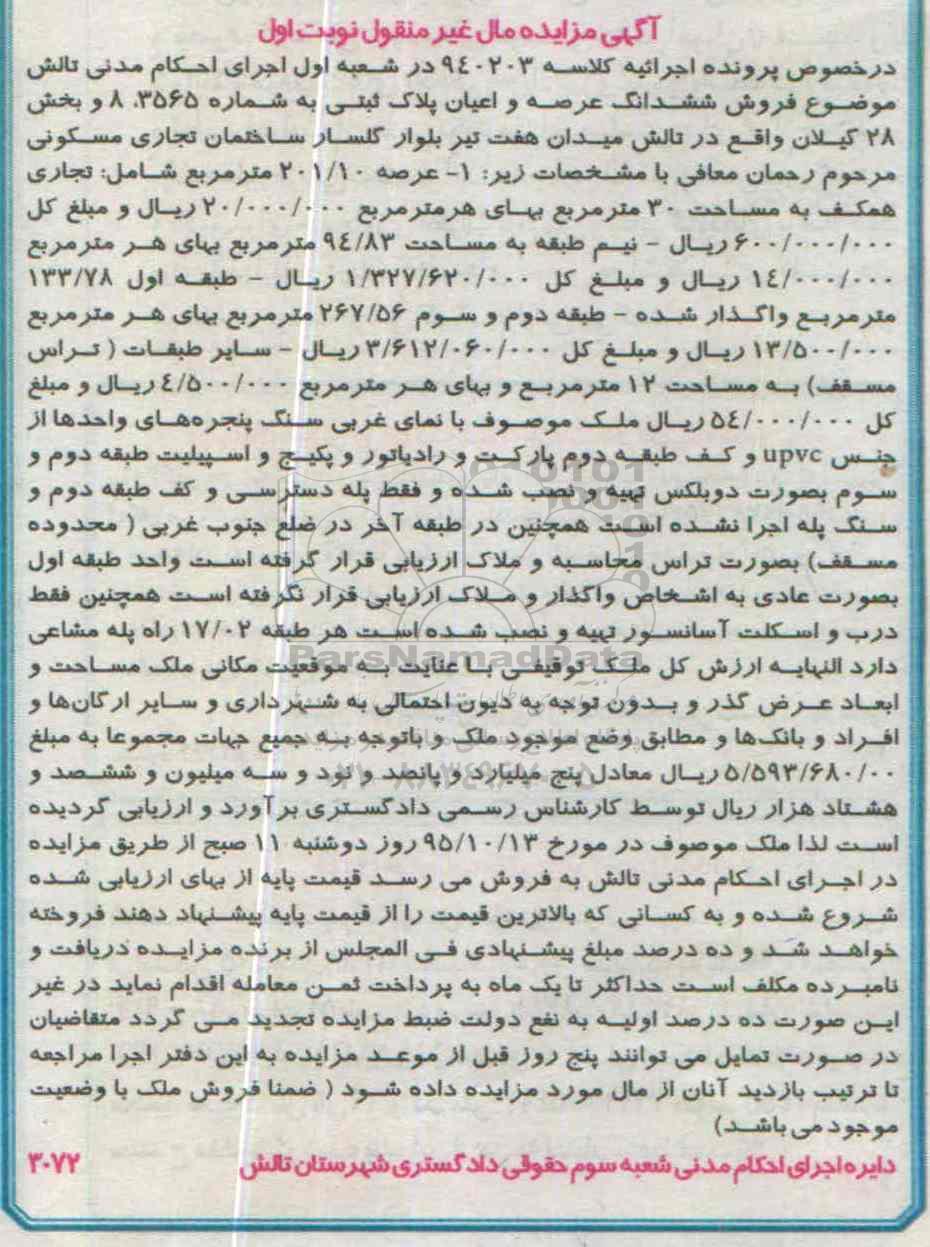 آگهی مزایده مال غیر منقول نوبت اول
درخصوص پرونده اجرائیه کلاسه ۹٤۰۲۰۳ در شعبه اول اجرای احکام مدنی تالش
موضوع فروش ششدانگ عرصه و اعیان پلاک ثبتی به شماره ۳۵۶۵، ۸ و بخش
۲۸ گیلان واقع در تالش میدان هفت تیر بلوار گلسار ساختمان تجاری مسکونی
مرحوم رحمان معافی با مشخصات زیر: ۱- عرصه ۲۰۱/۱۰ مترمربع شامل: تجاری
همکف به مساحت ۳۰ مترمربع بهای هرمترمربع ۲۰/۰۰۰/۰۰۰ ریال و مبلغ کل
۶۰۰/۰۰۰/۰۰۰ ریال - نیم طبقه به مساحت ۹٤/۸۳ مترمربع بهای هر مترمربع
۱٤/۰۰۰/۰۰۰ ریال و مبلغ کل ۱/۳۲۷/۶۲۰/۰۰۰ ریال - طبقه اول ۱۳۳/۷۸
مترمربع واگذار شده - طبقه دوم و سوم ۲۶۷/۵۶ مترمربع بهای هر مترمربع
۱۳/۵۰۰/۰۰۰ ریال و مبلغ کل ۳/۶۱۲/۰۶۰/۰۰۰ ریال - سایر طبقات ( تراس
مسقف) به مساحت ۱۲ مترمربع و بهای هر مترمربع ٤/۵۰۰/۰۰۰ ریال و مبلغ
کل ۵٤/۰۰۰/۰۰۰ ریال ملک موصوف با نمای غربی سنگ پنجره‌های واحدها از
جنس upvc و کف طبقه دوم پارکت و رادیاتور و پکیج و اسپیلیت طبقه دوم و
سوم بصورت دوبلکس تهیه و نصب شده و فقط پله دسترسی و کف طبقه دوم و
سنگ پله اجرا نشده است همچنین در طبقه آخر در ضلع جنوب غربی ( محدوده
مسقف) بصورت تراس محاسبه و ملاک ارزیابی قرار گرفته است واحد طبقه اول
بصورت عادی به اشخاص واگذار و ملاک ارزیابی قرار نگرفته است همچنین فقط
درب و اسکلت آسانسور تهیه و نصب شده است هر طبقه ۱۷/۰۲ راه پله مشاعی
دارد النهایه ارزش کل ملک توقیفی با عنایت به موقعیت مکانی ملک مساحت و
ابعاد عرض گذر و بدون توجه به دیون احتمالی به شهرداری و سایر ارگان‌ها و
افراد و بانک‌ها و مطابق وضع موجود ملک و باتوجه به جمیع جهات مجموعا به مبلغ
۵/۵۹۳/۶۸۰/۰۰ ریال معادل پنج میلیارد و پانصد و نود و سه میلیون و ششصد و
هشتاد هزار ریال توسط کارشناس رسمی دادگستری برآورد و ارزیابی گردیده
است لذا ملک موصوف در مورخ ۹۵/۱۰/۱۳ روز دوشنبه ۱۱ صبح از طریق مزایده
در اجرای احکام مدنی تالش به فروش می رسد قیمت پایه از بهای ارزیابی شده
شروع شده و به کسانی که بالاترین قیمت را از قیمت پایه پیشنهاد دهند فروخته
خواهد شد و ده درصد مبلغ پیشنهادی فی المجلس از برنده مزایده دریافت و
نامبرده مکلف است حداکثر تا یک ماه به پرداخت ثمن معامله اقدام نماید در غیر
این صورت ده درصد اولیه به نفع دولت ضبط مزایده تجدید می گردد متقاضیان
در صورت تمایل می توانند پنج روز قبل از موعد مزایده به این دفتر اجرا مراجعه
تا ترتیب بازدید آنان از مال مورد مزایده داده شود ( ضمنا فروش ملک با وضعیت
موجود می باشد)
دایره اجرای احکام مدنی شعبه سوم حقوقی دادگستری شهرستان تالش ۳۰۷۲
BarsNamadData